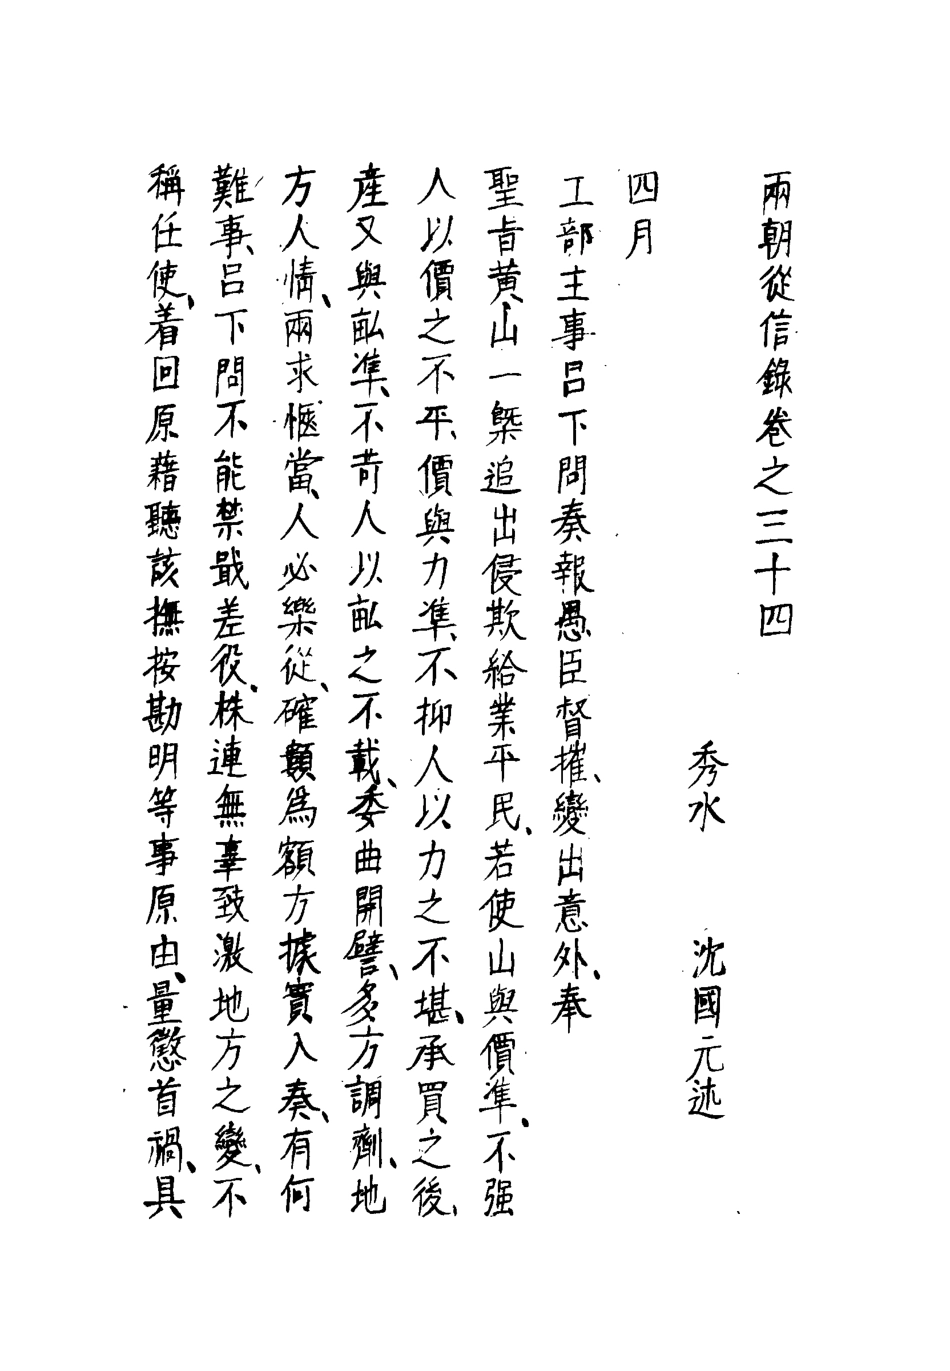 兩朝從信錄卷之三十四
秀水 沈國元述
四月
工部主事呂下問奏報愚臣督摧、變出意外、奉
聖旨黄山一槩追出侵欺給業平民、若使山與價準、不强
人以價之不平、價與力準、不抑人以力之不堪、承買之後、
產又與畝準、不苛人以畝之不載、委曲開譬、多方調劑、地
方人情、兩求愜當、人必樂從、確額為額方據實入奏、有何
難事、呂下問不能禁戢差役、株連無辜致激地方之變、不
稱任使、着回原藉聽該撫按勘明等事原由、量懲首禍、具